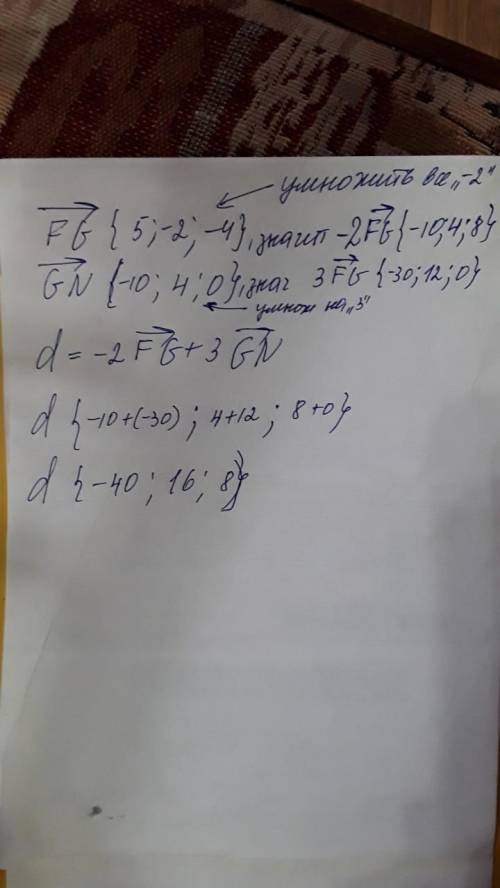 умножить на „-2"
FG {5; -2; -4}, значит -2FG{-10; 4; 8}
GN {-10; 4; 0}, знач 3FG {-30; 12; 0}
умнож на „3"
d = -2FG + 3GN
d {-10+(-30); 4+12; 8+0}
d {-40; 16; 8}